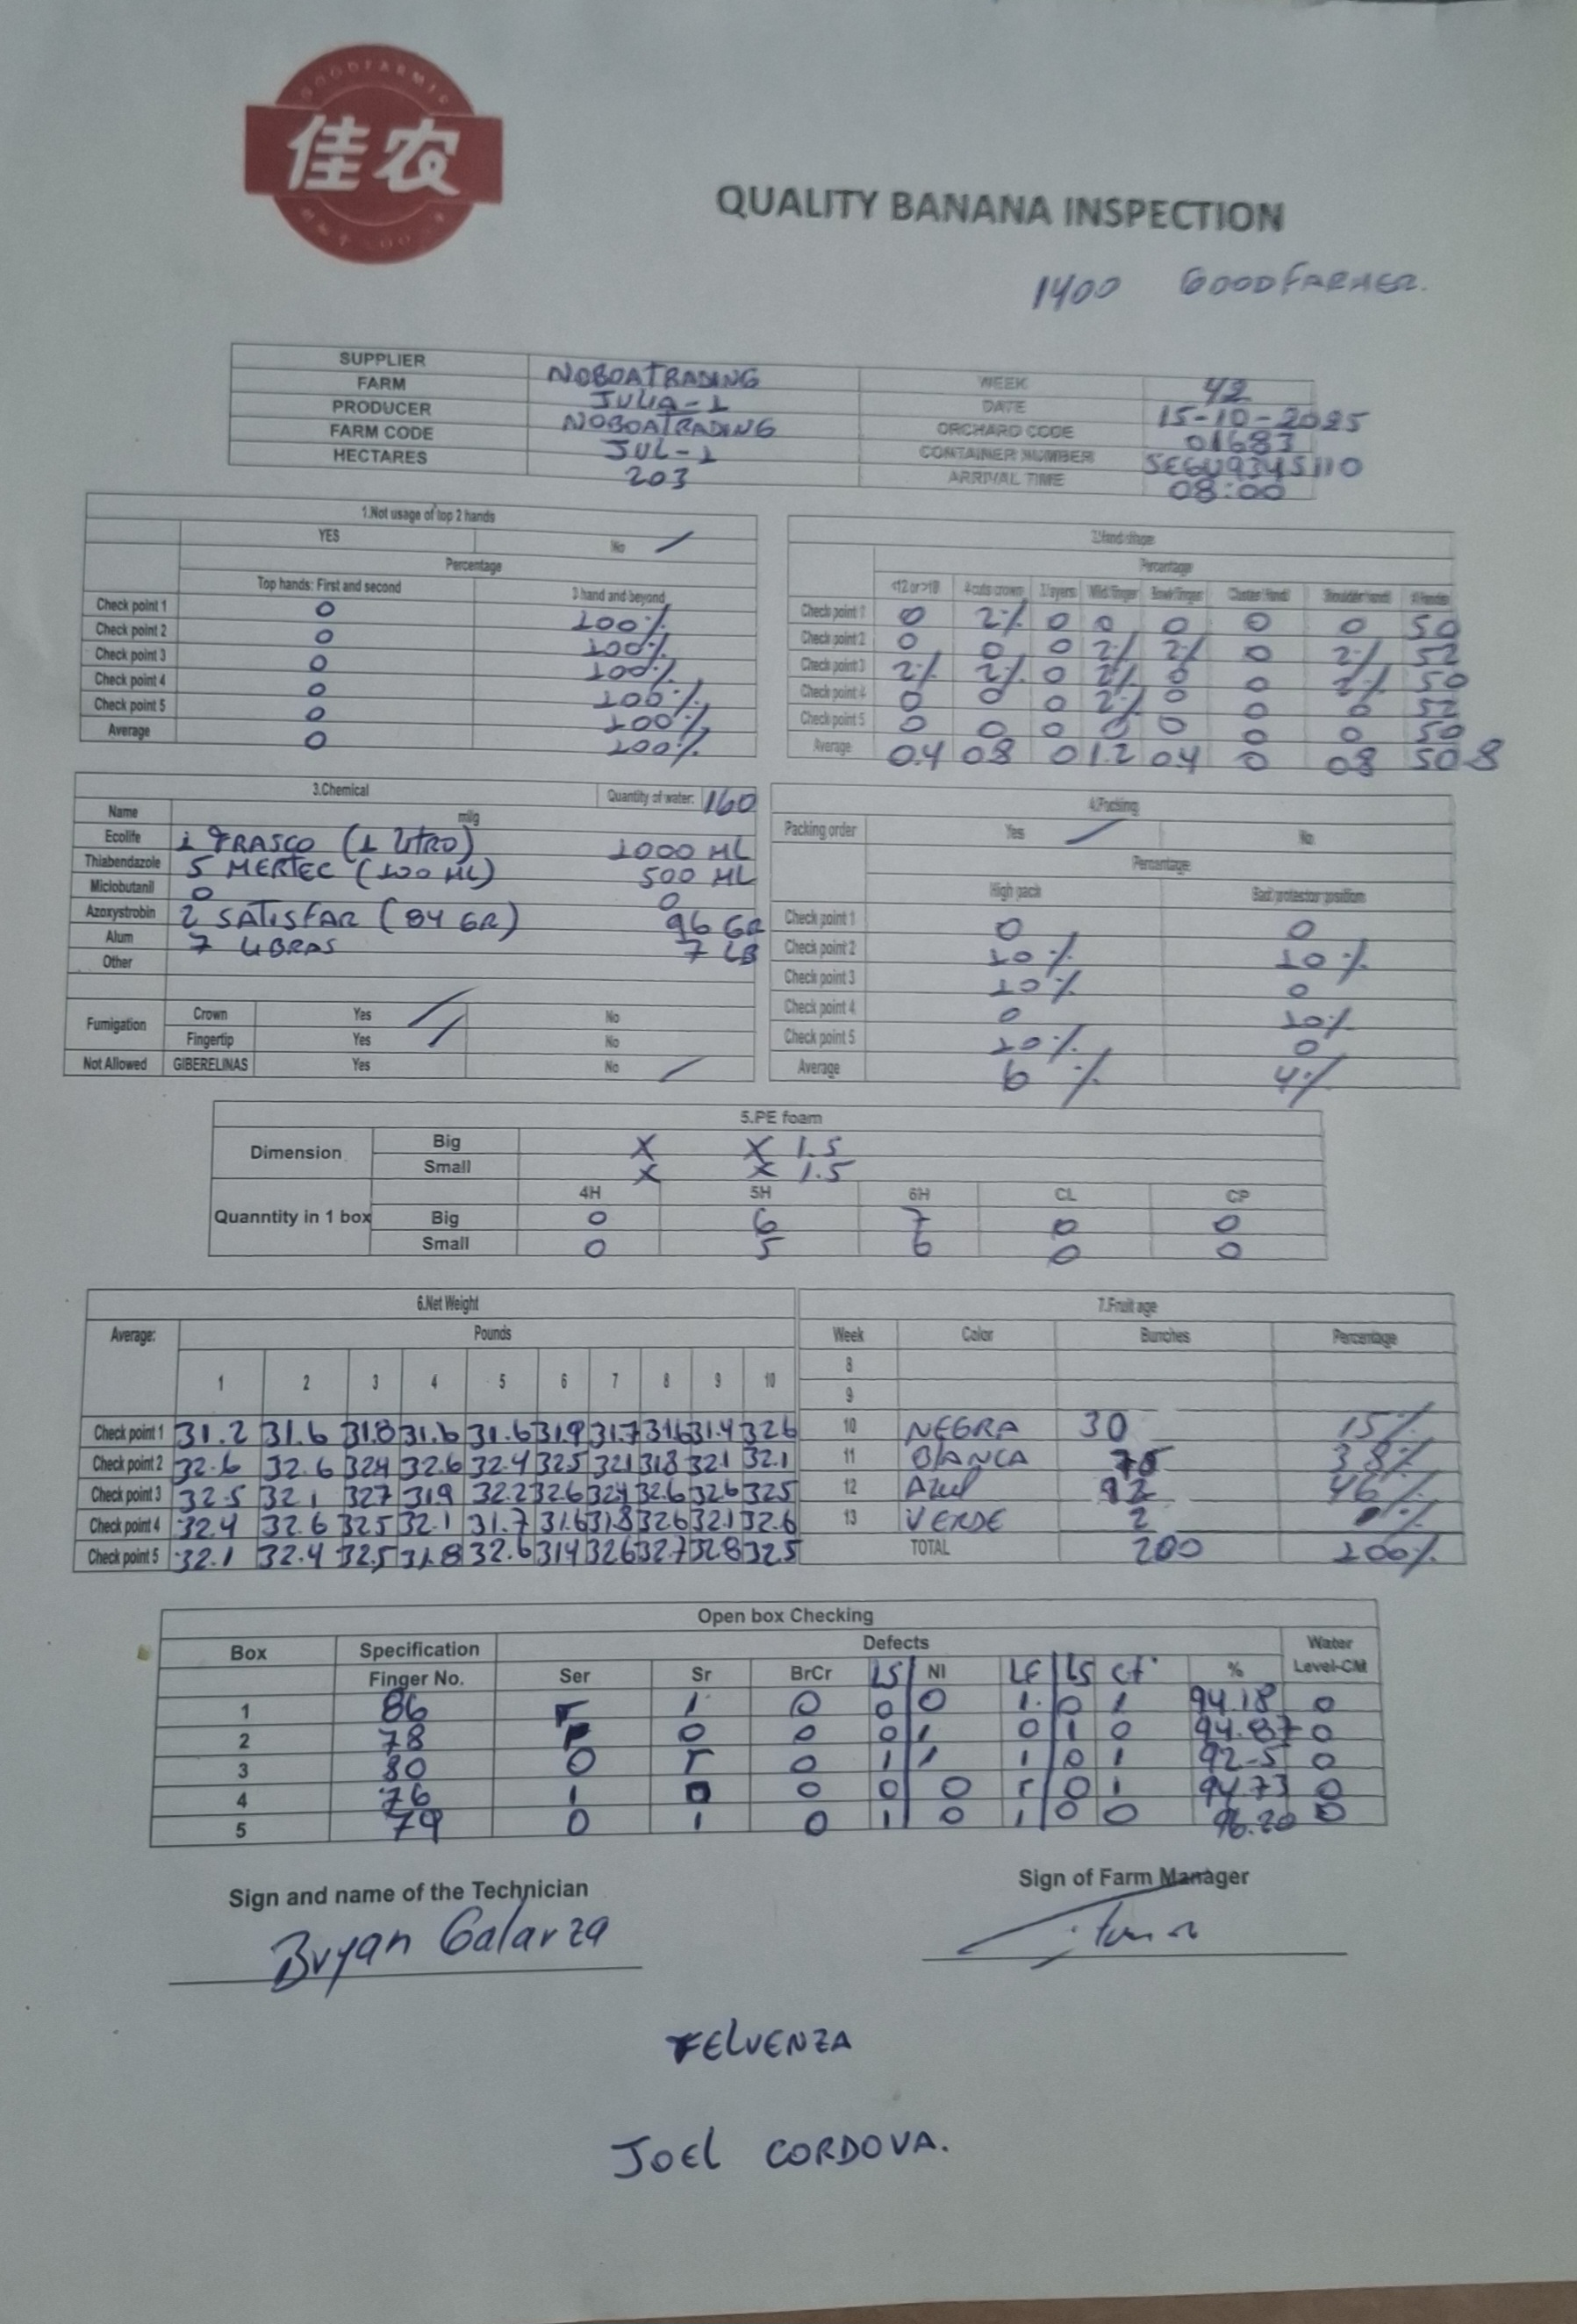 GOODFARMER
佳农
QUALITY BANANA INSPECTION
1400 GOODFARMER.
SUPPLIER NOBOATRADING WEEK 42
FARM JULIA-1 DATE 15-10-2025
PRODUCER NOBOATRADING ORCHARD CODE 01683
FARM CODE JUL-1 CONTAINER NUMBER SEGU9345110
HECTARES 203 ARRIVAL TIME 08:00
1.Not usage of top 2 hands
YES No /
Percentage
Top hands: First and second 3 hand and beyond
Check point 1 0 100%
Check point 2 0 100%
Check point 3 0 100%
Check point 4 0 100%
Check point 5 0 100%
Average 0 100%
Percentage
<12 or >18 4 cuts crown
Check point 1 0 2% 0 0 0 0 0 50
Check point 2 0 0 0 2% 2% 0 2% 52
Check point 3 2% 2% 0 2% 0 0 2% 50
Check point 4 0 0 0 2% 0 0 0 52
Check point 5 0 0 0 0 0 0 0 50
Average 0.4 0.8 0 1.2 0.4 0 0.8 50.8
3.Chemical Quantity of water: 160
Name ml/g
Ecolife 1 FRASCO (1 LITRO) 1000 ML
Thiabendazole 5 MERTEC (100 ML) 500 ML
Miclobutanil 0 0
Azoxystrobin 2 SATISFAR (84 GR) 96 GR
Alum 7 LIBRAS 7 LB
Other
Fumigation Crown Yes / No
Fingertip Yes / No
Not Allowed GIBERELINAS Yes No /
4.Packing
Packing order Yes / No
Percentage
High pack Bad protector position
Check point 1 0 0
Check point 2 10% 10%
Check point 3 10% 0
Check point 4 0 10%
Check point 5 10% 0
Average 6% 4%
5.PE foam
Dimension Big X X 1.5
Small X X 1.5
4H 5H 6H CL CP
Quanntity in 1 box Big 0 6 7 0 0
Small 0 5 6 0 0
6.Net Weight
Average: Pounds
1 2 3 4 5 6 7 8 9 10
Check point 1 31.2 31.6 31.8 31.6 31.6 31.9 31.7 31.6 31.4 32.6
Check point 2 32.6 32.6 32.4 32.6 32.4 32.5 32.1 31.8 32.1 32.1
Check point 3 32.5 32.1 32.7 31.9 32.2 32.6 32.4 32.6 32.6 32.5
Check point 4 32.4 32.6 32.5 32.1 31.7 31.6 31.8 32.6 32.1 32.6
Check point 5 32.1 32.4 32.5 31.8 32.6 31.4 32.6 32.7 32.8 32.5
7.Fruit age
Week Color Bunches Percentage
8
9
10 NEGRA 30 15%
11 BLANCA 76 38%
12 AZUL 92 46%
13 VERDE 2 %
TOTAL 200 100%
Open box Checking
Box Specification Defects Water
Finger No. Ser Sr BrCr LS NI LE LS Cf % Level-CM
1 86 1 0 0 0 1 0 1 94.18 0
2 78 0 0 0 1 0 1 0 94.87 0
3 80 0 0 1 1 1 0 1 92.5 0
4 76 1 0 0 0 0 1 0 1 94.73 0
5 79 0 1 0 1 0 1 0 0 96.20 0
Sign and name of the Technician Sign of Farm Manager
Bryan Galarza
FELVENZA
JOEL CORDOVA.